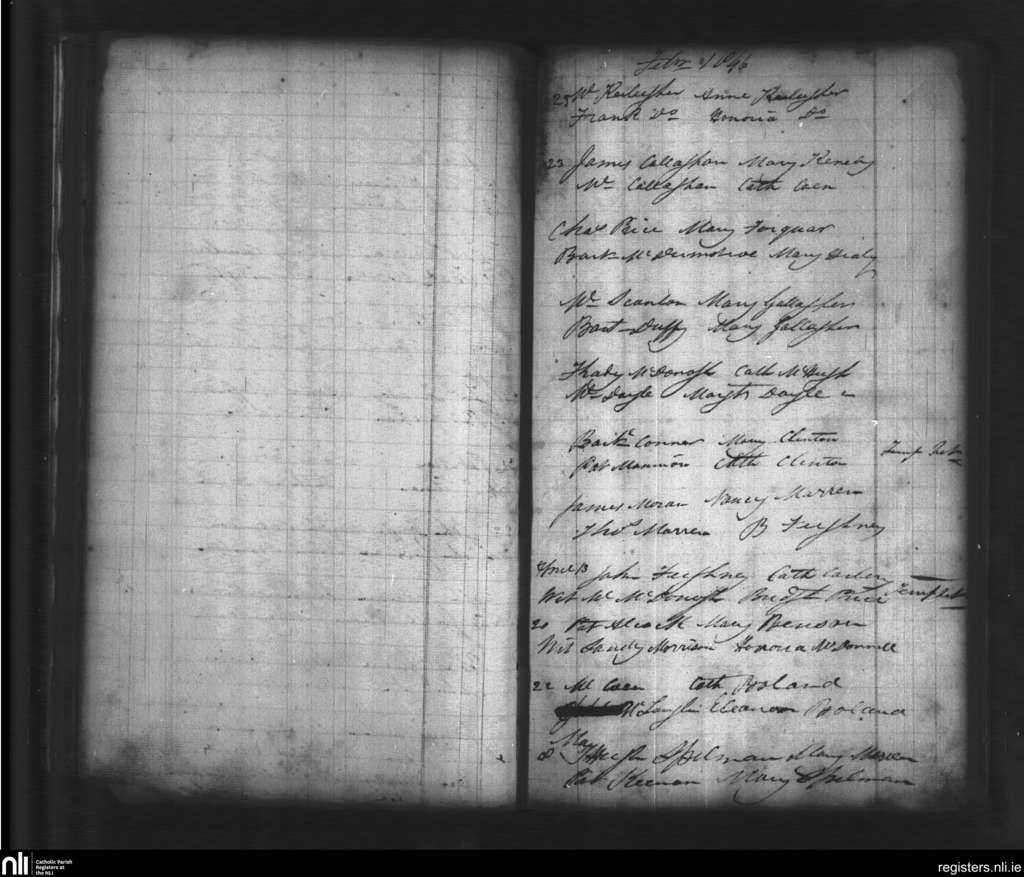 Feby 1846
25 Wm Keileher Anne Keileher
Frank Do Honoria Do
23 James Callaghan Mary
Wm Callaghan Cath Coen
Chas Price Mary Forquar
Bartk Mary Healy
Wm Scanlon Mary Gallagher
Bart Duffy Mary Gallagher
Thady McDonogh Cath McHugh
Wm Doyle Margt Doyle
Bartk Conner Mary Clinton
Pat Cath Clinton
James Moran Nancy Marren
Thos Marren B Feighney
13 John Feighney Cath
Wit Mc McDonogh Bridgt Price
20 Pat Mary Benson
Wit Sandy Morrison Honoria McDonnell
22 Ml Coen Cath Boland
McLoughlin Eleanor Boland
May
8 Hugh Spelman Mary
Pat Keenan Mary Spelman
nli
Catholic Parish
Registers at
the NLI
registers.nli.ie